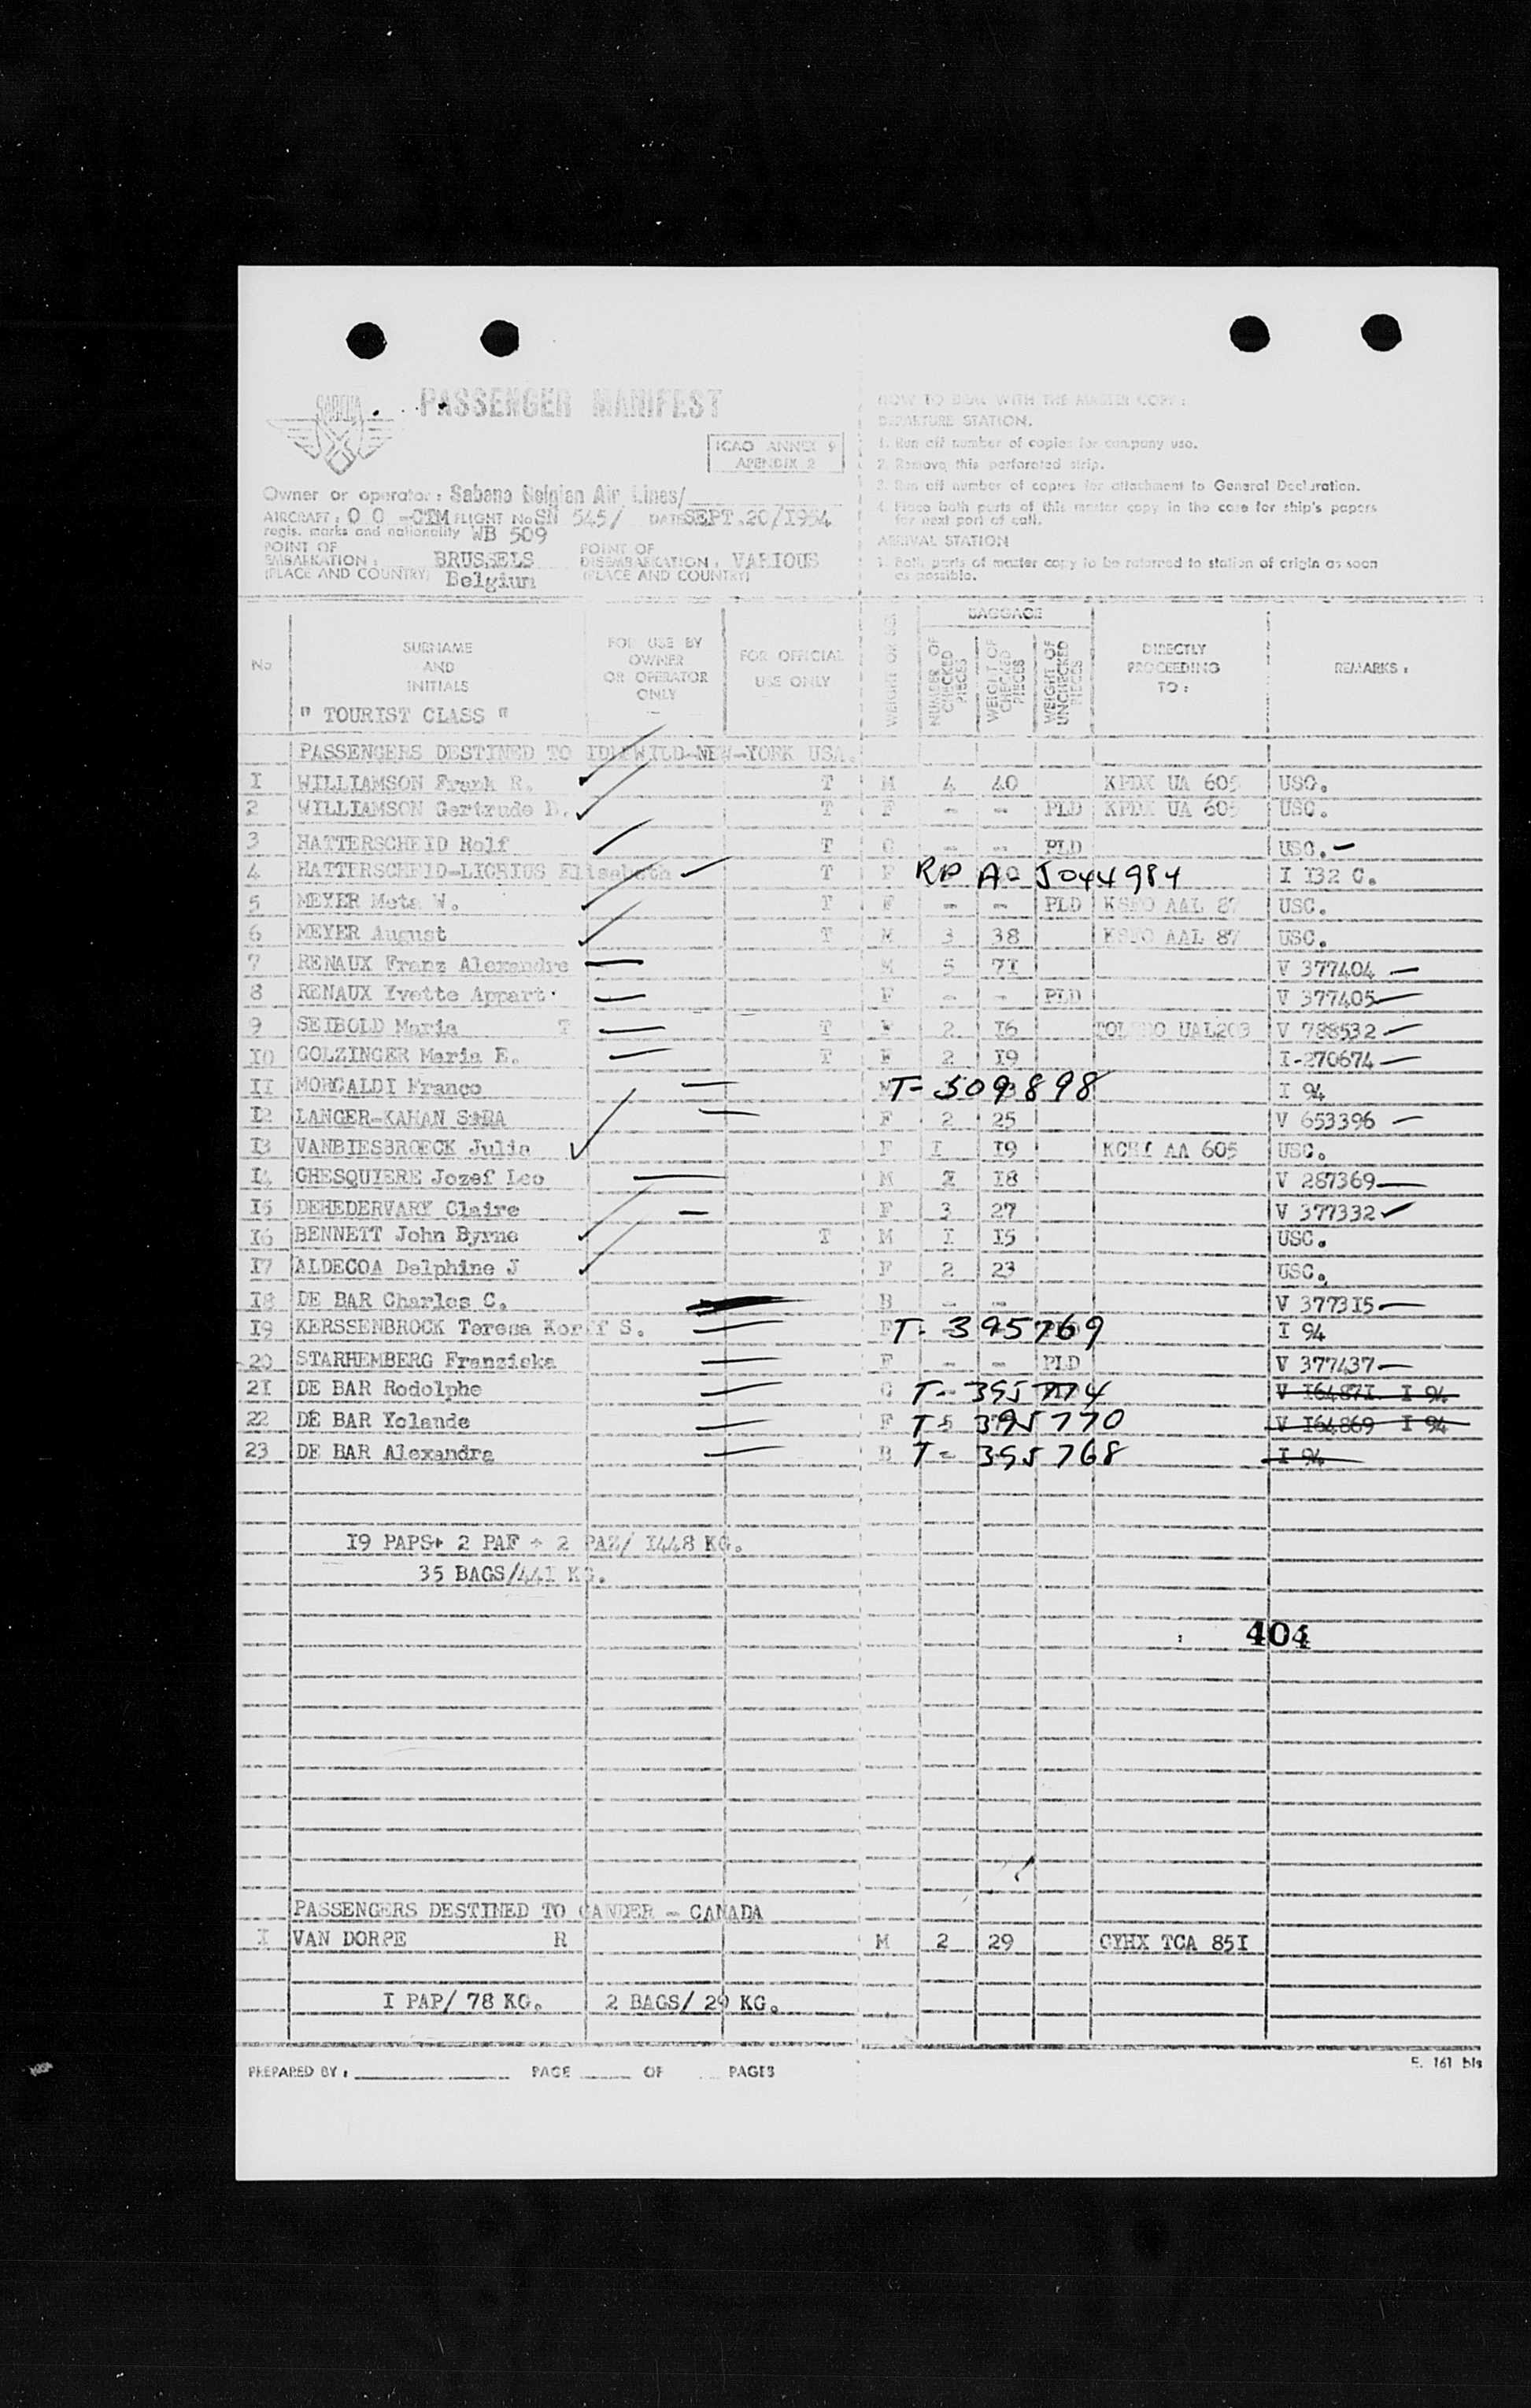 SABENA
PASSENGER MANIFEST
ICAO ANNEX 9
APENDIX 2
Owner or operator: Sabena Belgian Air Lines/
AIRCRAFT: O O -CTM FLIGHT No SN 545/ DATE SEPT.20/1954
regis. marks and nationality WB 509
POINT OF EMBARKATION: BRUSSELS POINT OF DISEMBARKATION: VARIOUS
(PLACE AND COUNTRY) Belgium (PLACE AND COUNTRY)
HOW TO DEAL WITH THE MASTER COPY:
DEPARTURE STATION.
1. Run off number of copies for company use.
2. Remove this perforated strip.
3. Run off number of copies for attachment to General Declaration.
4. Place both parts of this master copy in the case for ship's papers
for next port of call.
ARRIVAL STATION
1. Both parts of master copy to be returned to station of origin as soon
as possible.
No SURNAME AND INITIALS FOR USE BY OWNER OR OPERATOR ONLY FOR OFFICIAL USE ONLY WEIGHT OR SEX BAGGAGE NUMBER OF CHECKED PIECES WEIGHT OF CHECKED PIECES WEIGHT OF UNCHECKED PIECES DIRECTLY PROCEEDING TO: REMARKS:
" TOURIST CLASS "
PASSENGERS DESTINED TO IDLEWILD-NEW-YORK USA.
I WILLIAMSON Frank R. T M 4 40 KPDX UA 605 USC.
2 WILLIAMSON Gertrude D. T F - - PLD KPDX UA 605 USC.
3 HATTERSCHEID Rolf T C - - PLD USC.
4 HATTERSCHEID-LICHIUS Elisabeth T F RP A- J044984 I I32 C.
5 MEYER Meta W. T F - - PLD KSFO AAL 87 USC.
6 MEYER August T M 3 38 KSFO AAL 87 USC.
7 RENAUX Franz Alexandre M 5 7I V 377404
8 RENAUX Yvette Appart. F - - PLD V 377405
9 SEIBOLD Maria T T F 2 I6 TOLEDO UAL203 V 788532
IO GOLZINGER Maria E. T F 2 I9 I-270674
II MORCALDI Franco T- 509898 I 94
I2 LANGER-KAHAN SARA F 2 25 V 653396
I3 VANBIESBROECK Julia F I I9 KCHI AA 605 USC.
I4 GHESQUIERE Jozef Leo M 2 I8 V 287369
I5 DEHEDERVARY Claire F 3 27 V 377332
I6 BENNETT John Byrne T M I I5 USC.
I7 ALDECOA Delphine J F 2 23 USC.
I8 DE BAR Charles C. B - - V 3773I5
I9 KERSSENBROCK Teresa Korff S. F T- 395769 I 94
20 STARHEMBERG Franziska F - - PLD V 377437
2I DE BAR Rodolphe C T- 395774 V I6487I I 94
22 DE BAR Yolande F T- 395770 V I64869 I 94
23 DE BAR Alexandra B T- 395768 I 94
I9 PAPS+ 2 PAF + 2 PAZ/ I448 KG.
35 BAGS/44I KG.
404
PASSENGERS DESTINED TO GANDER - CANADA
I VAN DORPE R M 2 29 CYHX TCA 85I
I PAP/ 78 KG. 2 BAGS/ 29 KG.
PREPARED BY: PAGE OF PAGES
E. 161 bis